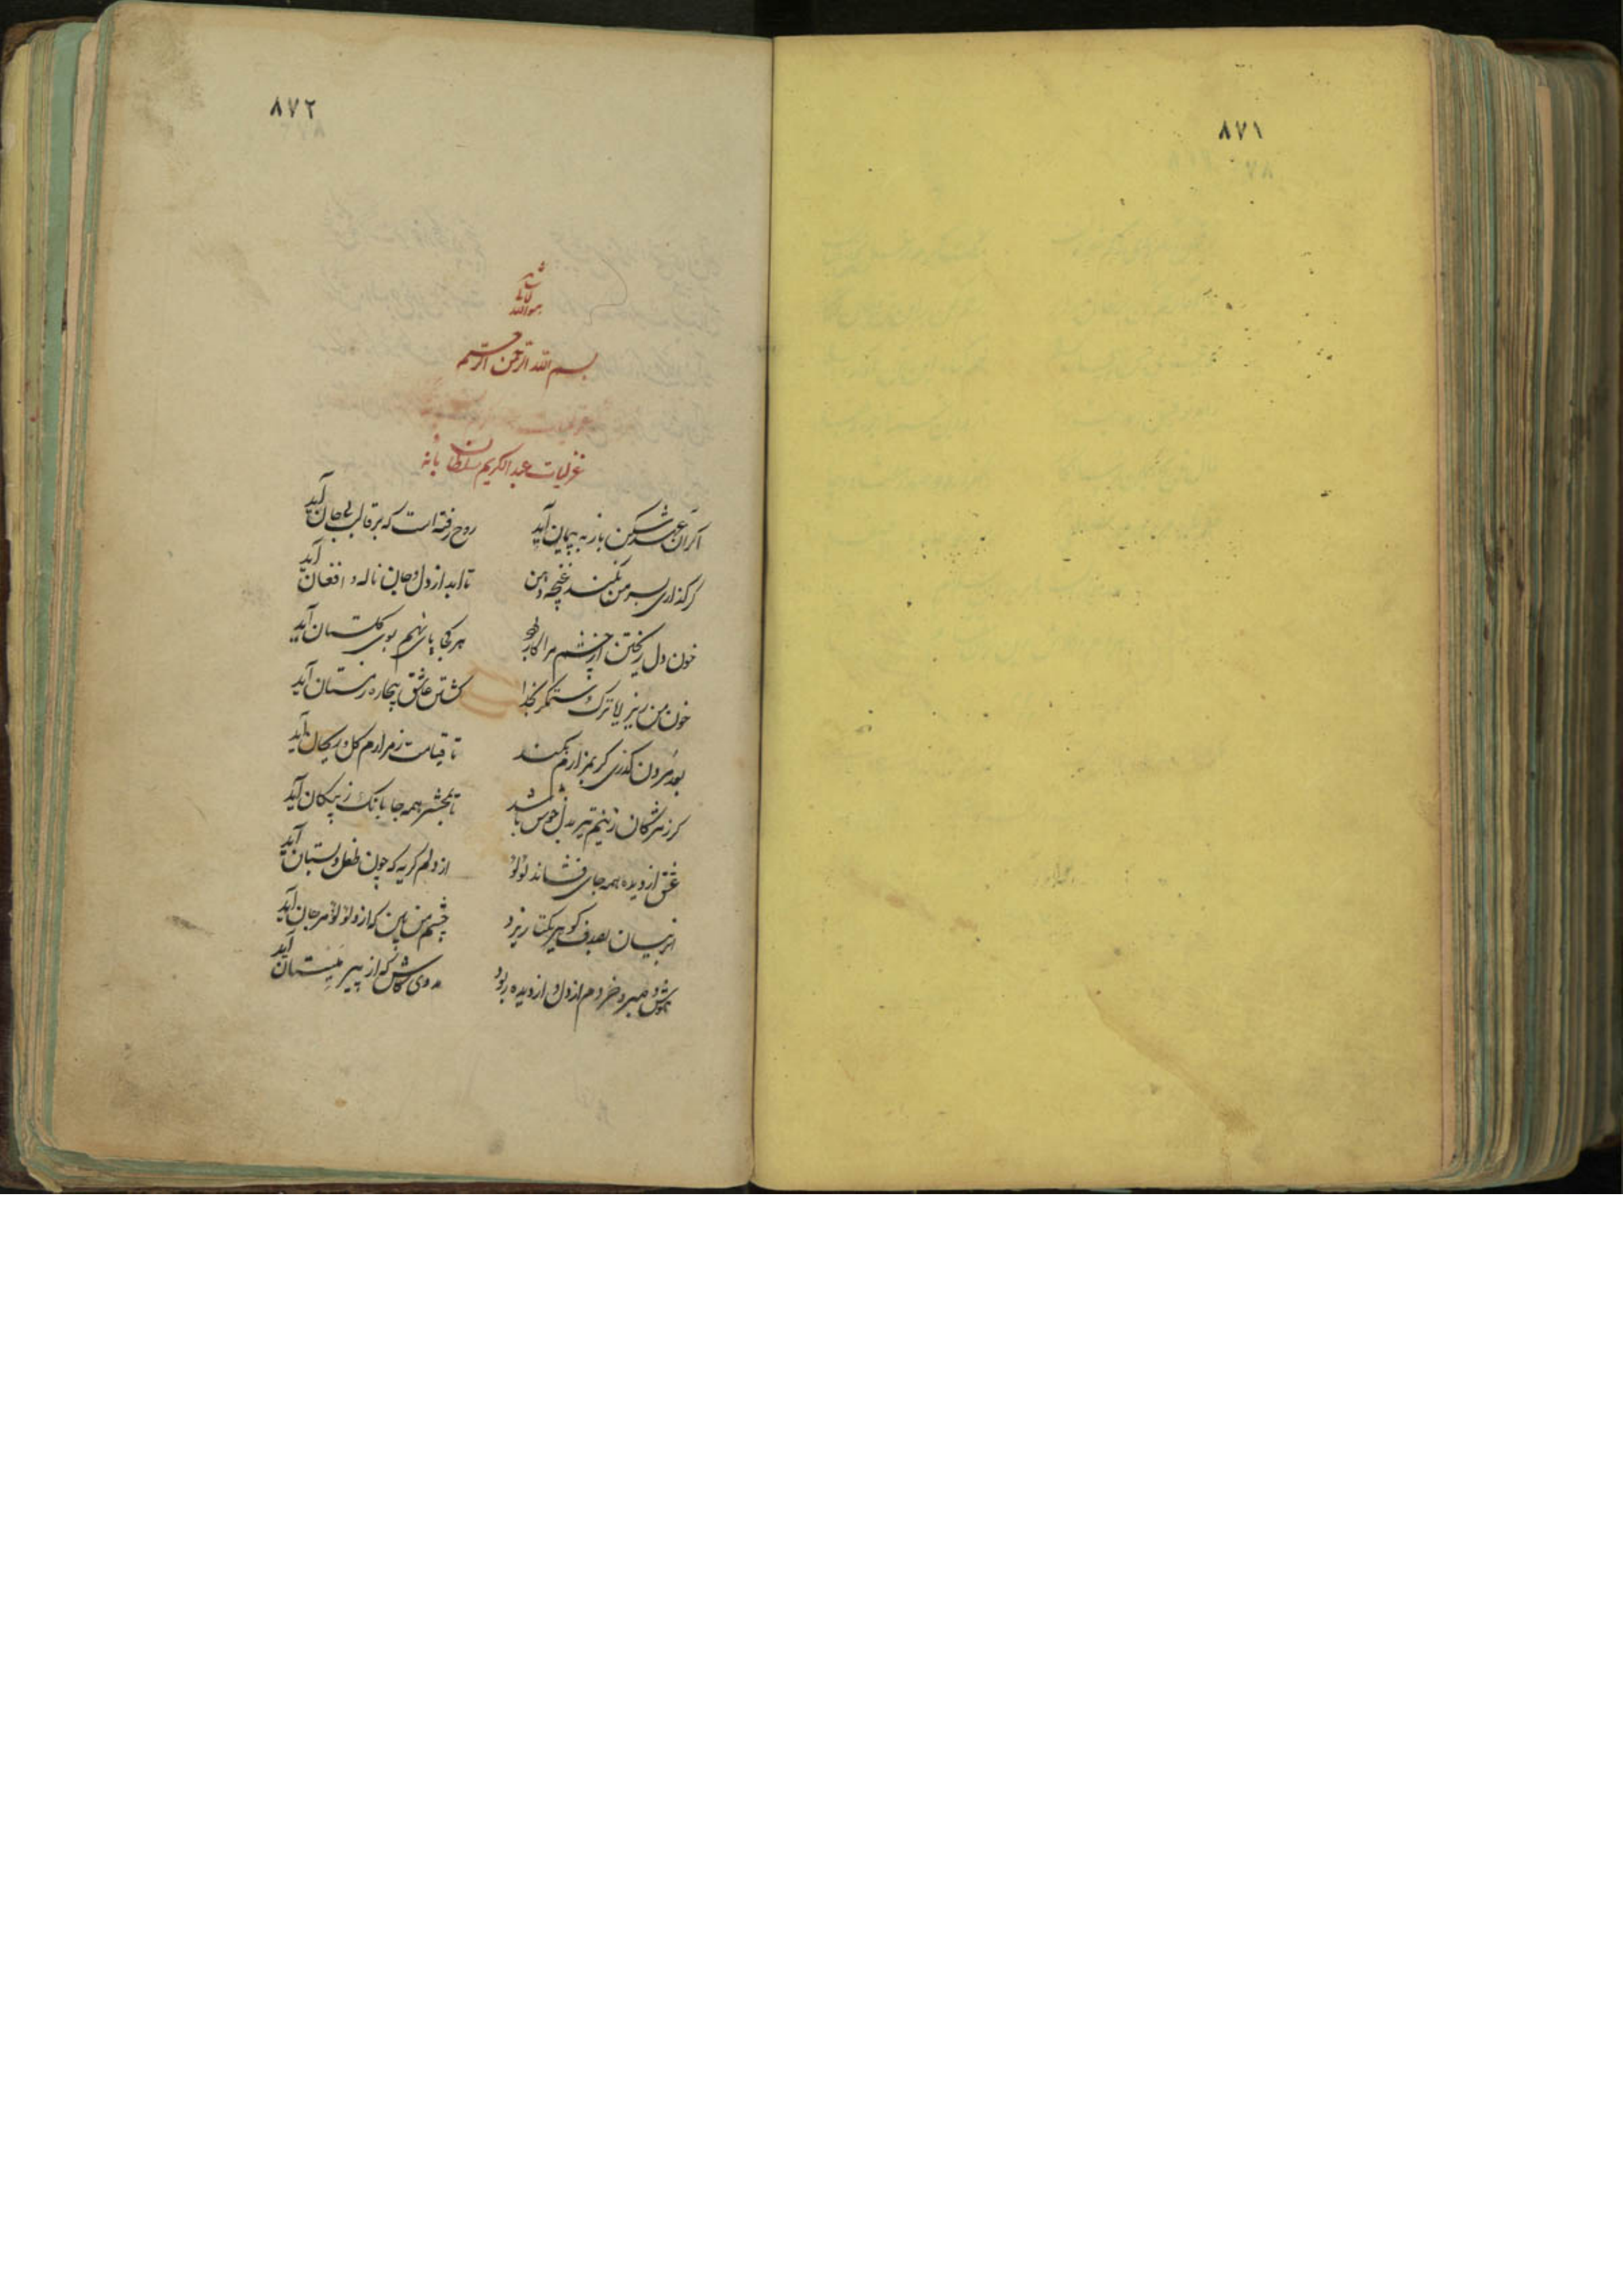 ٨٧١
٨٧٢
هو الله
بسم الله الرحمن الرحیم
غزلیات عبدالکریم سلطان بانه
اکر آن عهد شکن باز به پیمان آید روح رفته است که بر قالب بی جان آید
کر کذاری بسر من نکند غنچه دهن تا ابد از دل و جان ناله و افغان آید
خون دل ریختن از چشم مرا کار هر کجا پای نهم بوی کلستان آید
خون من ریز یا ترک ستمکر بخدا کشتن عاشق بیچاره ز مستان آید
بعد مردن کذری کر بمزارم بکند تا قیامت ز مزارم کل و ریحان آید
کر ز مژکان زنیم تیر بدل خوش باشد تا بمحشر همه جا بانک ز پیکان آید
از دیده همه جای فشاند لؤلؤ از دلم کریه که چون طفل دبستان آید
ابر نیسان بصدف کوهر یکتا ریزد چشم من بین که ازو لؤلؤ مرجان آید
صبر و خردم از دل و از دیده ربود که از پیر آید